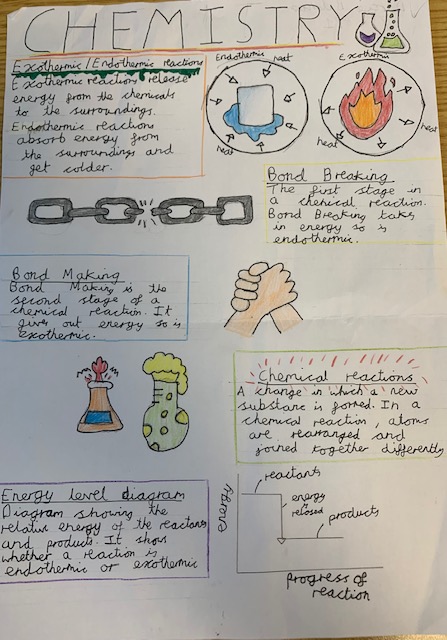 CHEMISTRY
Exothermic/Endothermic reactions
Exothermic reactions release
energy from the chemicals
to the surroundings.
Endothermic reactions
absorb energy from
the surroundings and
get colder.
Endothermic
heat
heat
Exothermic
heat
heat
Bond Breaking
The first stage in
a chemical reaction.
Bond Breaking takes
in energy so is
endothermic.
Bond Making
Bond Making is the
second stage of a
chemical reaction. It
gives out energy so is
exothermic.
Chemical reactions
A change in which a new
substance is formed. In a
chemical reaction, atoms
are rearranged and
joined together differently
Energy level diagram
Diagram showing the
relative energy of the reactants
and products. It shows
whether a reaction is
endothermic or exothermic
energy
reactants
energy
is
released
products
progress of
reaction